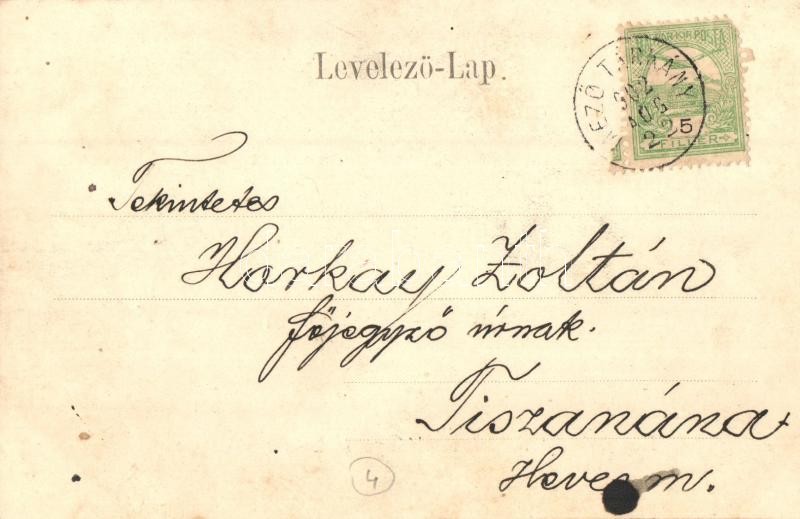 Levelező-Lap.
MAGY. KIR. POSTA
5
FILLÉR
MEZŐ TÁRKÁNY
902
AUG
22
Tekintetes
Horkay Zoltán
főjegyző úrnak.
Tiszanána
Heves m.
4